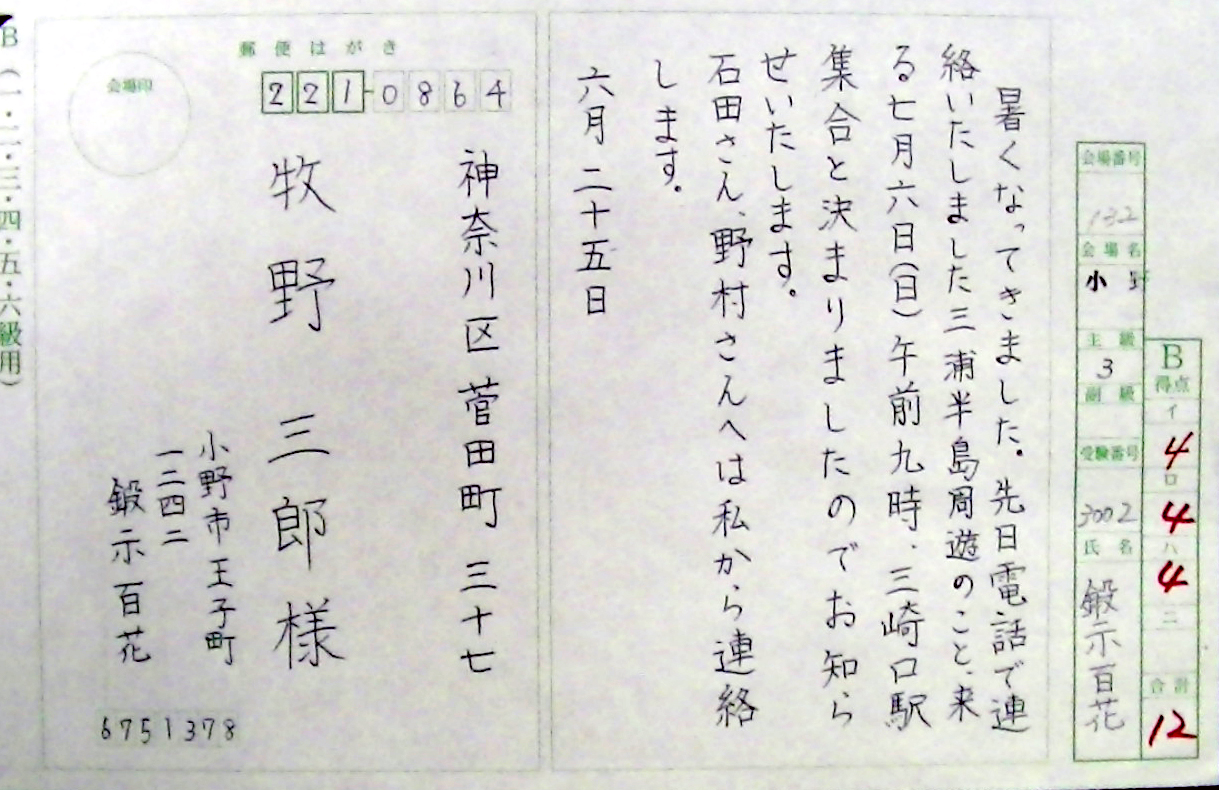 会場番号
132
会場名
小野
主級
3
副級
受験番号
3002
氏名
鍛示百花
B
得点
イ
4
ロ
4
ハ
4
ニ
合計
12
暑くなってきました。先日電話で連
絡いたしました三浦半島周遊のこと、来
る七月六日(日)午前九時、三崎口駅
集合と決まりましたのでお知ら
せいたします。
石田さん、野村さんへは私から連絡
します。
六月二十五日
郵便はがき
221-0864
会場印
神奈川区菅田町三十七
牧野三郎様
小野市王子町
一二四二
鍛示百花
6751378
B(一・二・三・四・五・六級用)